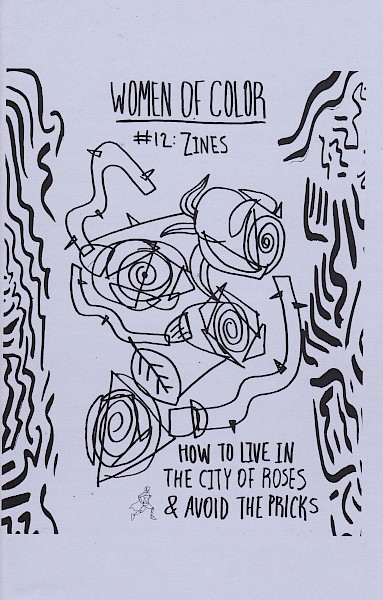 WOMEN OF COLOR
#12: ZINES
HOW TO LIVE IN
THE CITY OF ROSES
& AVOID THE PRICKS